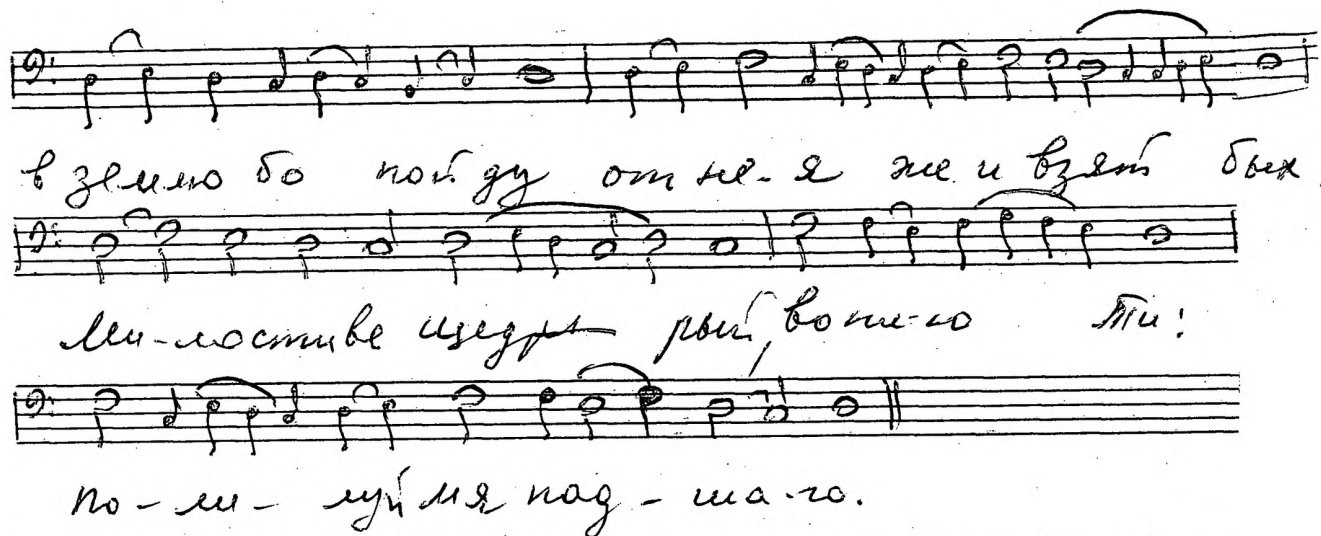 в землю бо пойду от не-я же и взят бых
Ми-лостиве щедры рый, вопи-ю Ти:
по-ми-луй мя пад-ша-го.